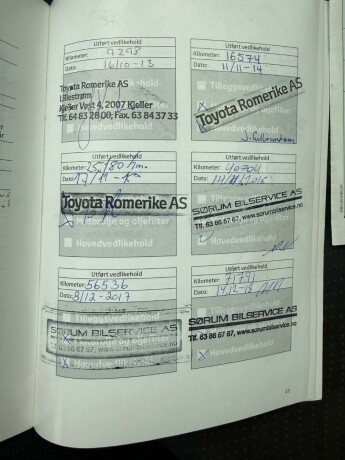 Utført vedlikehold
Kilometer: 9298
Dato: 16/10-13
Toyota Romerike AS
Lillestrøm
Kjeller Vest 4, 2007 Kjeller
Tlf. 64 83 28 00, Fax. 63 84 37 33
Utført vedlikehold
Kilometer: 16574
Dato: 11/11-14
Tilleggsvedlikehold
Toyota Romerike AS
Hovedvedlikehold
Utført vedlikehold
Kilometer: 25180 km.
Dato:
Toyota Romerike AS
Motorolje og oljefilter
Hovedvedlikehold
Utført vedlikehold
Kilometer: 40704
Dato:
SØRUM BILSERVICE AS
Tlf. 63 86 67 67, www.sorumbilservice.no
Hovedvedlikehold
Utført vedlikehold
Kilometer: 56536
Dato: 8/12-2017
Tilleggsvedlikehold
SØRUM BILSERVICE AS
Tlf. 63 86 67 67, www.sorumbilservice.no
Hovedvedlikehold
Utført vedlikehold
Kilometer:
Dato:
SØRUM BILSERVICE AS
Tlf. 63 86 67 67, www.sorumbilservice.no
Hovedvedlikehold